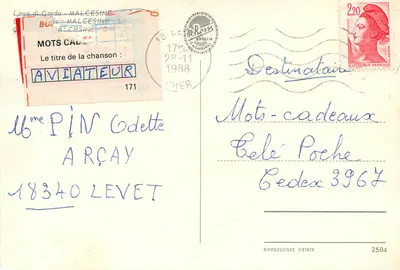 Lago di Garda - MALCESINE
MOTS CAD
Le titre de la chanson :
AVIATEUR
171
18 LE
17H
28-11
1988
CHER
2,20
Destinataire
Mots-cadeaux
Télé Poche
Cedex 3967
Mme PIN Odette
ARÇAY
18340 LEVET
RIPRODUZIONE VIETATA
250a